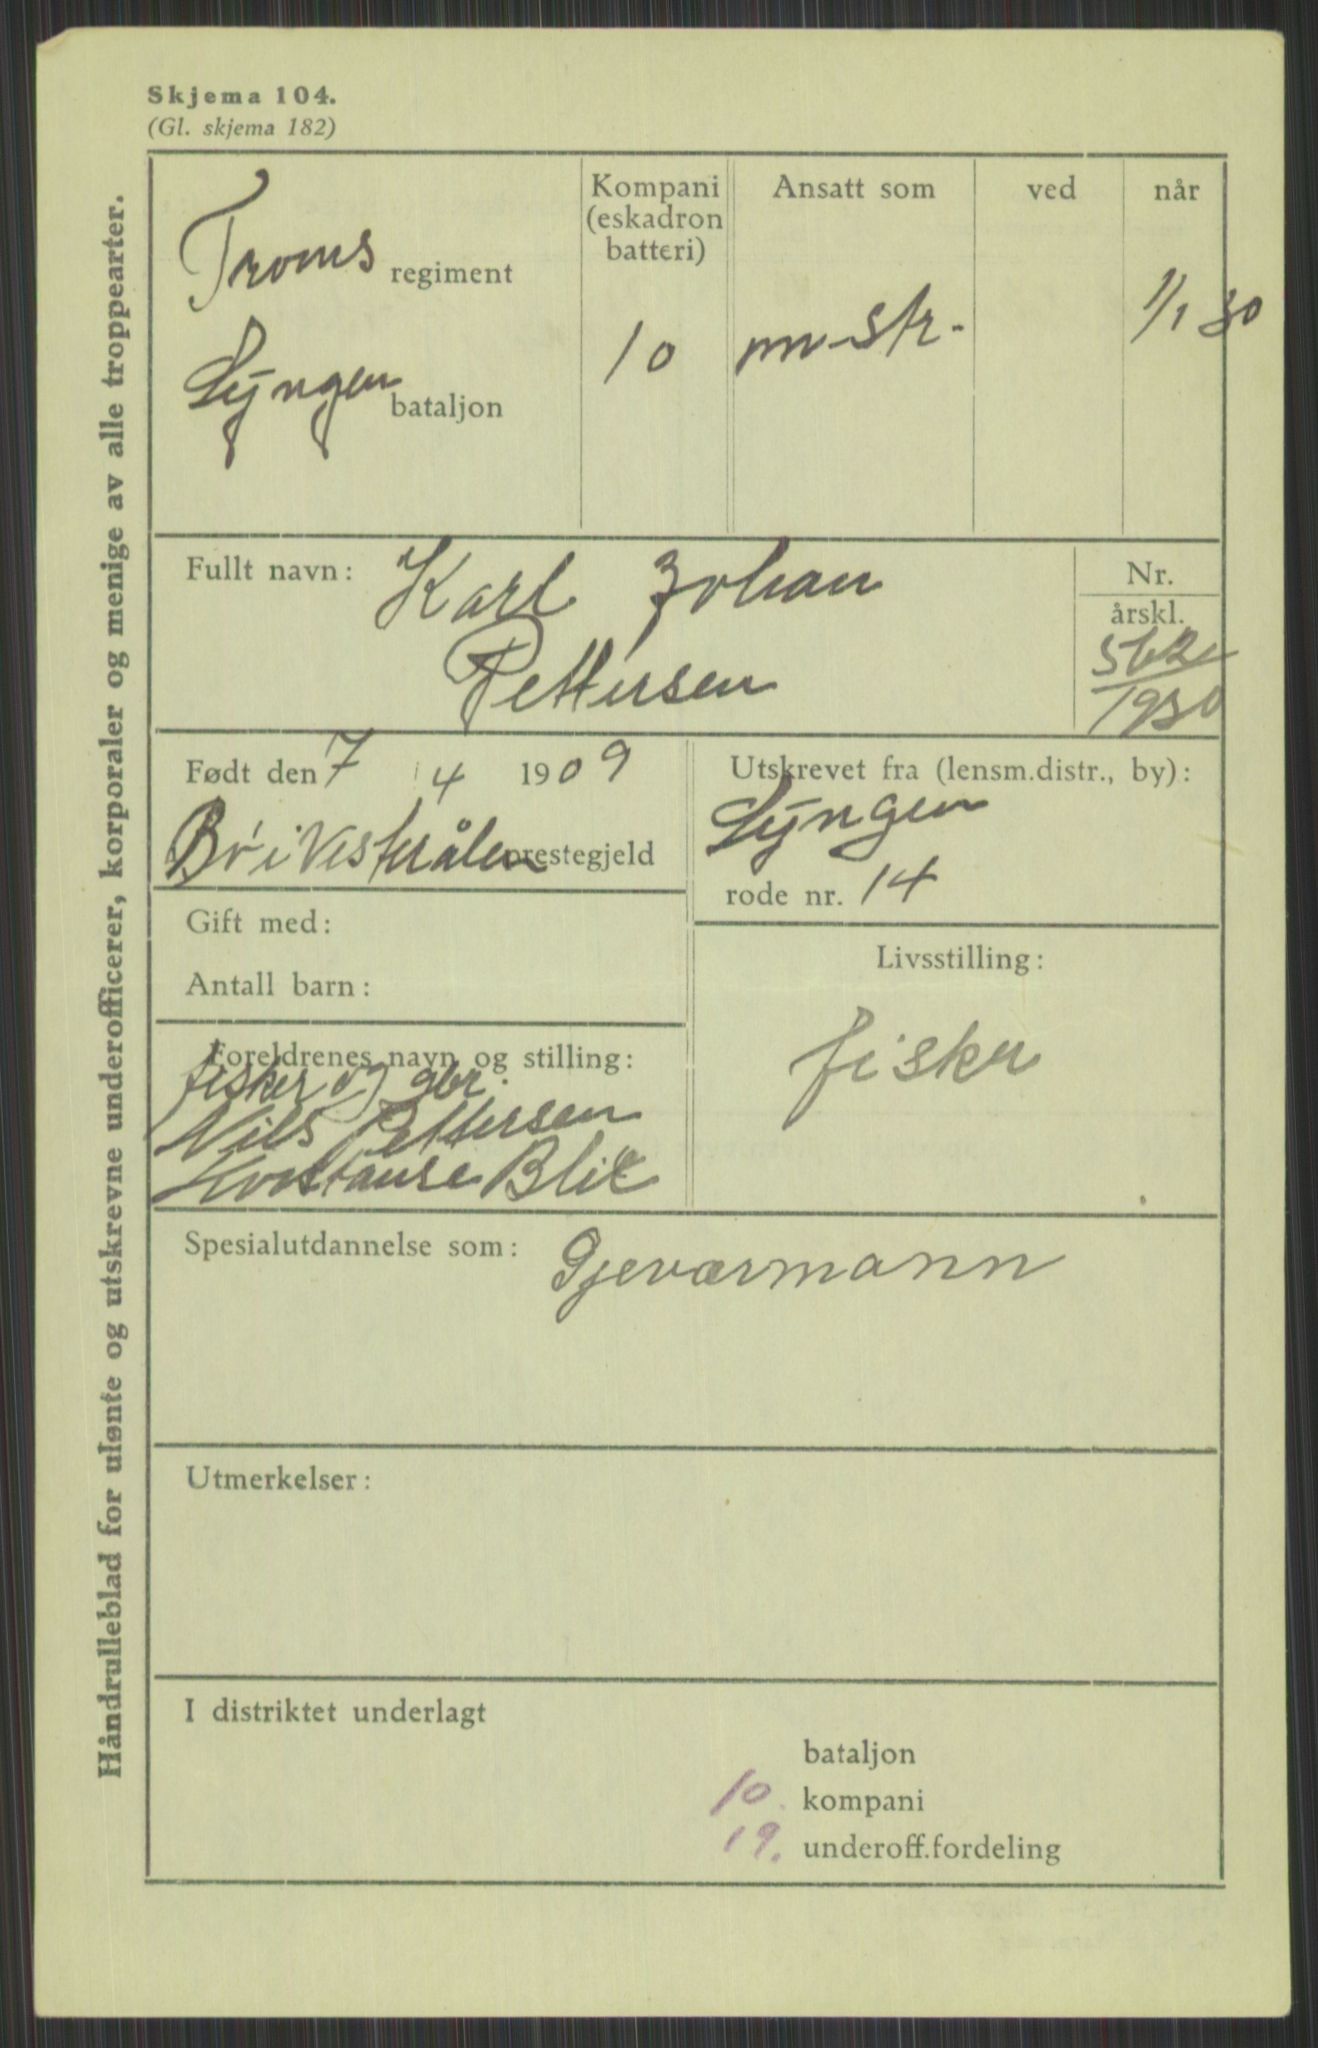 Skjema 104.
(Gl. skjema 182)
Håndrulleblad for ulønte og utskrevne underofficerer, korporaler og menige av alle troppearter.
Troms regiment
Lyngen bataljon
Kompani
(eskadron
batteri)
10
Ansatt som
ved
når
1/1 30
Fullt navn: Karl Johan
Pettersen
Nr.
årskl.
1930
Født den 7 4 1909
Bø i Vesterålen prestegjeld
Utskrevet fra (lensm.distr., by):
Lyngen
rode nr. 14
Gift med:
Antall barn:
Livsstilling:
fisker
Foreldrenes navn og stilling:
fisker og gbr.
Nils Pettersen
Spesialutdannelse som: Gjeværmann
Utmerkelser:
I distriktet underlagt
bataljon
10. kompani
19. underoff.fordeling